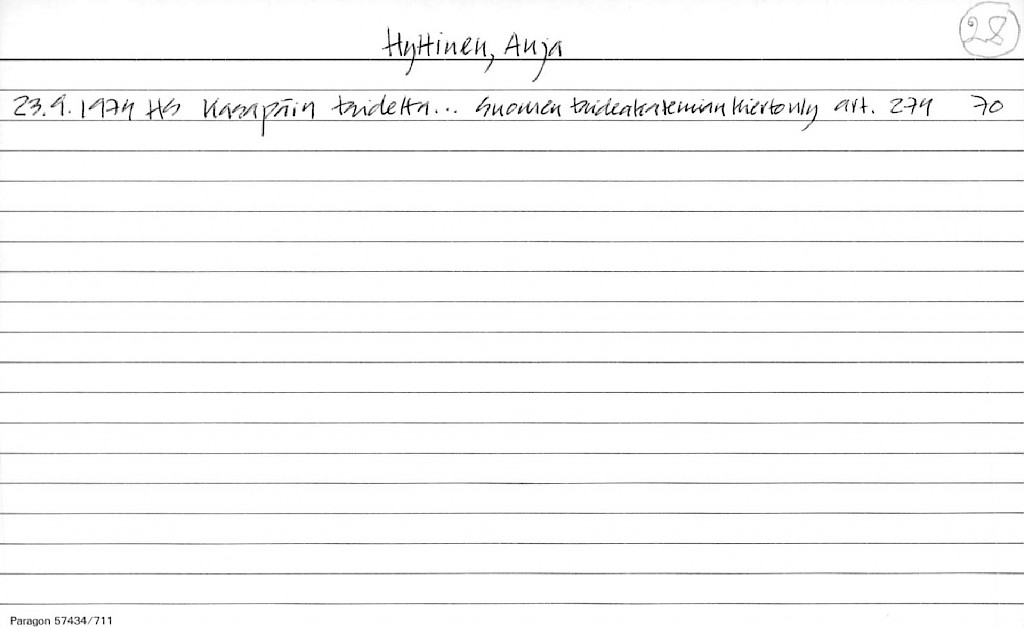 28
Hyttinen, Anja
23.9.1974 HS Kasapäin taidetta... Suomen taideakatemian kiertonly art. 274 70
Paragon 57434/711